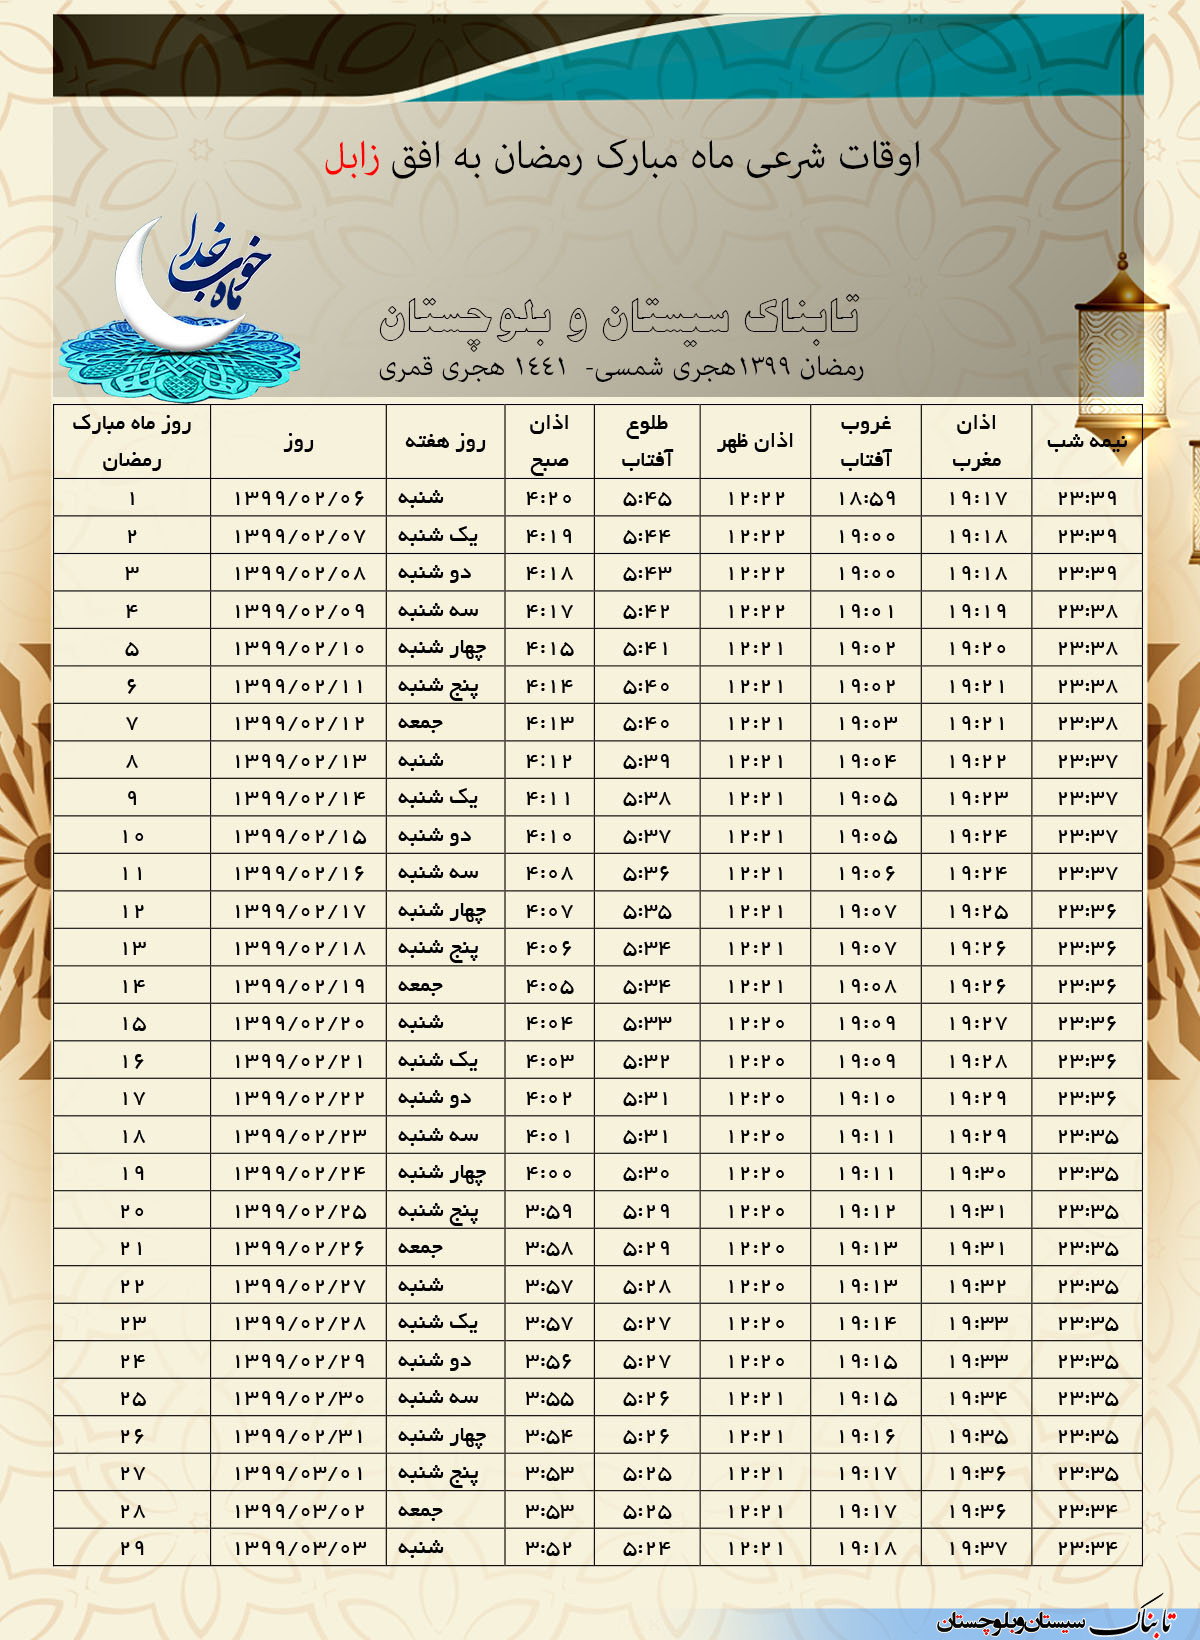 اوقات شرعی ماه مبارک رمضان به افق زابل
ماه خوب خدا
تابناک سیستان و بلوچستان
رمضان ۱۳۹۹هجری شمسی- ۱٤٤۱ هجری قمری
روز ماه مبارک رمضان روز روز هفته اذان صبح طلوع آفتاب اذان ظهر غروب آفتاب اذان مغرب نیمه شب
۱ ۱۳۹۹/۰۲/۰۶ شنبه ۴:۲۰ ۵:۴۵ ۱۲:۲۲ ۱۸:۵۹ ۱۹:۱۷ ۲۳:۳۹
۲ ۱۳۹۹/۰۲/۰۷ یک شنبه ۴:۱۹ ۵:۴۴ ۱۲:۲۲ ۱۹:۰۰ ۱۹:۱۸ ۲۳:۳۹
۳ ۱۳۹۹/۰۲/۰۸ دو شنبه ۴:۱۸ ۵:۴۳ ۱۲:۲۲ ۱۹:۰۰ ۱۹:۱۸ ۲۳:۳۹
۴ ۱۳۹۹/۰۲/۰۹ سه شنبه ۴:۱۷ ۵:۴۲ ۱۲:۲۲ ۱۹:۰۱ ۱۹:۱۹ ۲۳:۳۸
۵ ۱۳۹۹/۰۲/۱۰ چهار شنبه ۴:۱۵ ۵:۴۱ ۱۲:۲۱ ۱۹:۰۲ ۱۹:۲۰ ۲۳:۳۸
۶ ۱۳۹۹/۰۲/۱۱ پنج شنبه ۴:۱۴ ۵:۴۰ ۱۲:۲۱ ۱۹:۰۲ ۱۹:۲۱ ۲۳:۳۸
۷ ۱۳۹۹/۰۲/۱۲ جمعه ۴:۱۳ ۵:۴۰ ۱۲:۲۱ ۱۹:۰۳ ۱۹:۲۱ ۲۳:۳۸
۸ ۱۳۹۹/۰۲/۱۳ شنبه ۴:۱۲ ۵:۳۹ ۱۲:۲۱ ۱۹:۰۴ ۱۹:۲۲ ۲۳:۳۷
۹ ۱۳۹۹/۰۲/۱۴ یک شنبه ۴:۱۱ ۵:۳۸ ۱۲:۲۱ ۱۹:۰۵ ۱۹:۲۳ ۲۳:۳۷
۱۰ ۱۳۹۹/۰۲/۱۵ دو شنبه ۴:۱۰ ۵:۳۷ ۱۲:۲۱ ۱۹:۰۵ ۱۹:۲۴ ۲۳:۳۷
۱۱ ۱۳۹۹/۰۲/۱۶ سه شنبه ۴:۰۸ ۵:۳۶ ۱۲:۲۱ ۱۹:۰۶ ۱۹:۲۴ ۲۳:۳۷
۱۲ ۱۳۹۹/۰۲/۱۷ چهار شنبه ۴:۰۷ ۵:۳۵ ۱۲:۲۱ ۱۹:۰۷ ۱۹:۲۵ ۲۳:۳۶
۱۳ ۱۳۹۹/۰۲/۱۸ پنج شنبه ۴:۰۶ ۵:۳۴ ۱۲:۲۱ ۱۹:۰۷ ۱۹:۲۶ ۲۳:۳۶
۱۴ ۱۳۹۹/۰۲/۱۹ جمعه ۴:۰۵ ۵:۳۴ ۱۲:۲۱ ۱۹:۰۸ ۱۹:۲۶ ۲۳:۳۶
۱۵ ۱۳۹۹/۰۲/۲۰ شنبه ۴:۰۴ ۵:۳۳ ۱۲:۲۰ ۱۹:۰۹ ۱۹:۲۷ ۲۳:۳۶
۱۶ ۱۳۹۹/۰۲/۲۱ یک شنبه ۴:۰۳ ۵:۳۲ ۱۲:۲۰ ۱۹:۰۹ ۱۹:۲۸ ۲۳:۳۶
۱۷ ۱۳۹۹/۰۲/۲۲ دو شنبه ۴:۰۲ ۵:۳۱ ۱۲:۲۰ ۱۹:۱۰ ۱۹:۲۹ ۲۳:۳۶
۱۸ ۱۳۹۹/۰۲/۲۳ سه شنبه ۴:۰۱ ۵:۳۱ ۱۲:۲۰ ۱۹:۱۱ ۱۹:۲۹ ۲۳:۳۵
۱۹ ۱۳۹۹/۰۲/۲۴ چهار شنبه ۴:۰۰ ۵:۳۰ ۱۲:۲۰ ۱۹:۱۱ ۱۹:۳۰ ۲۳:۳۵
۲۰ ۱۳۹۹/۰۲/۲۵ پنج شنبه ۳:۵۹ ۵:۲۹ ۱۲:۲۰ ۱۹:۱۲ ۱۹:۳۱ ۲۳:۳۵
۲۱ ۱۳۹۹/۰۲/۲۶ جمعه ۳:۵۸ ۵:۲۹ ۱۲:۲۰ ۱۹:۱۳ ۱۹:۳۱ ۲۳:۳۵
۲۲ ۱۳۹۹/۰۲/۲۷ شنبه ۳:۵۷ ۵:۲۸ ۱۲:۲۰ ۱۹:۱۳ ۱۹:۳۲ ۲۳:۳۵
۲۳ ۱۳۹۹/۰۲/۲۸ یک شنبه ۳:۵۷ ۵:۲۷ ۱۲:۲۰ ۱۹:۱۴ ۱۹:۳۳ ۲۳:۳۵
۲۴ ۱۳۹۹/۰۲/۲۹ دو شنبه ۳:۵۶ ۵:۲۷ ۱۲:۲۰ ۱۹:۱۵ ۱۹:۳۳ ۲۳:۳۵
۲۵ ۱۳۹۹/۰۲/۳۰ سه شنبه ۳:۵۵ ۵:۲۶ ۱۲:۲۱ ۱۹:۱۵ ۱۹:۳۴ ۲۳:۳۵
۲۶ ۱۳۹۹/۰۲/۳۱ چهار شنبه ۳:۵۴ ۵:۲۶ ۱۲:۲۱ ۱۹:۱۶ ۱۹:۳۵ ۲۳:۳۵
۲۷ ۱۳۹۹/۰۳/۰۱ پنج شنبه ۳:۵۳ ۵:۲۵ ۱۲:۲۱ ۱۹:۱۷ ۱۹:۳۶ ۲۳:۳۵
۲۸ ۱۳۹۹/۰۳/۰۲ جمعه ۳:۵۳ ۵:۲۵ ۱۲:۲۱ ۱۹:۱۷ ۱۹:۳۶ ۲۳:۳۴
۲۹ ۱۳۹۹/۰۳/۰۳ شنبه ۳:۵۲ ۵:۲۴ ۱۲:۲۱ ۱۹:۱۸ ۱۹:۳۷ ۲۳:۳۴
تابناک سیستان‌وبلوچستان